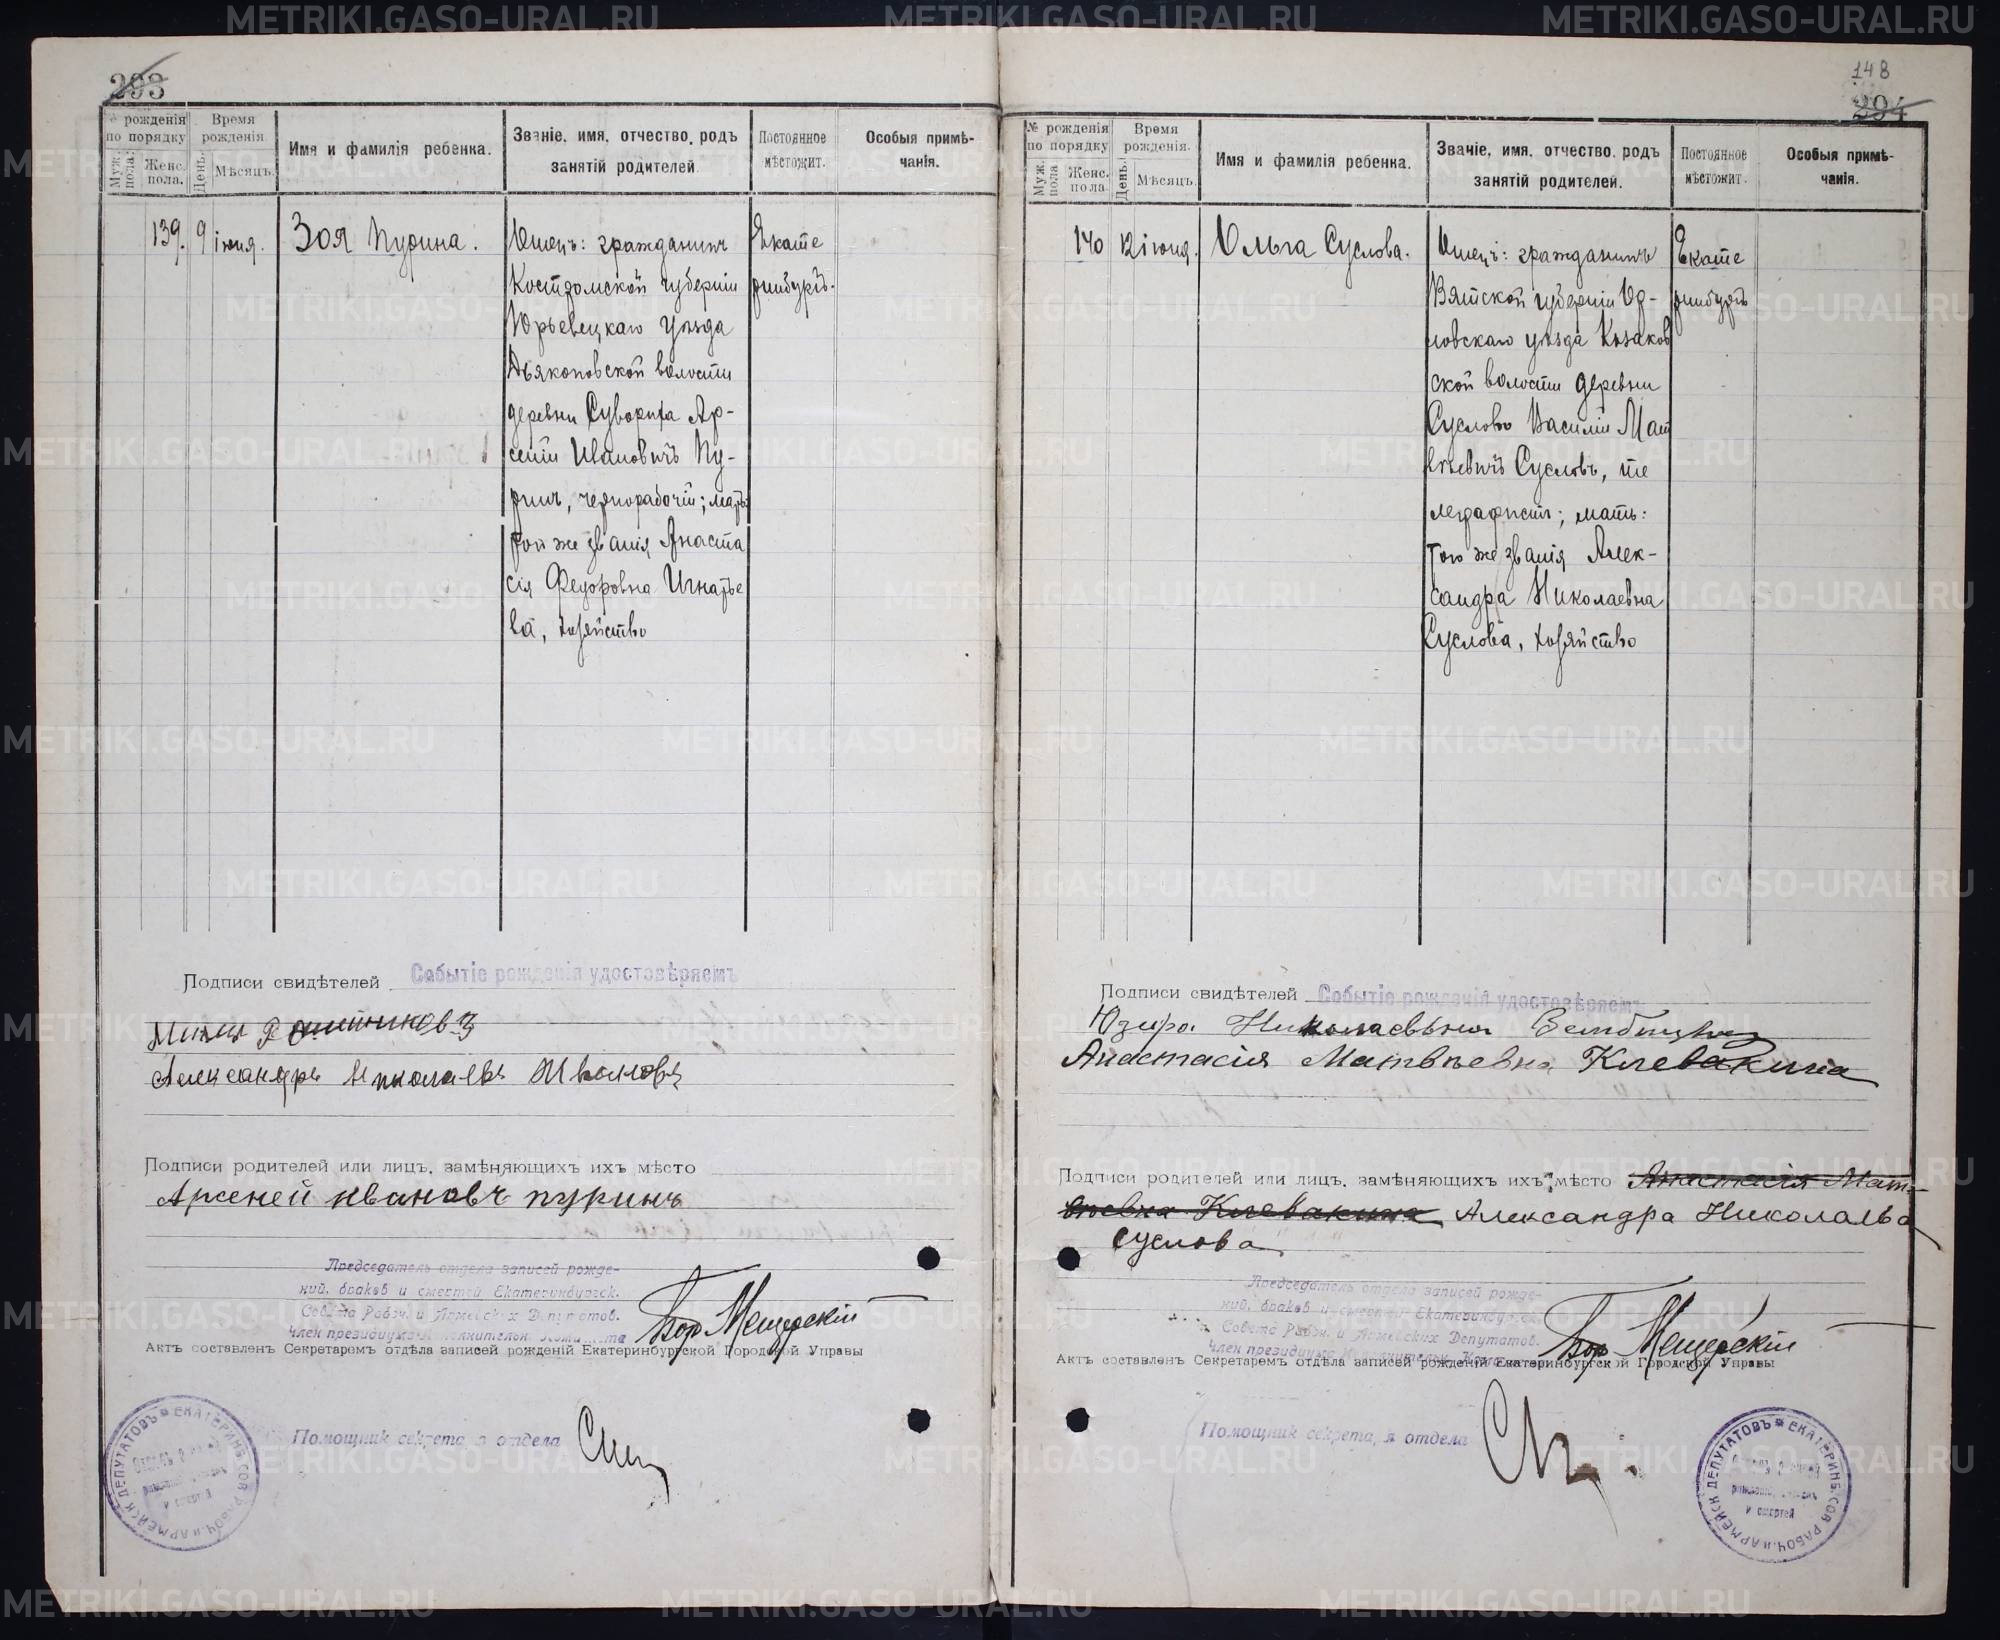 293
№ рожденія
по порядку
Муж. пола.
Женс. пола.
Время
рожденія.
День.
Мѣсяцъ.
Имя и фамилія ребенка.
Званіе, имя, отчество, родъ
занятій родителей.
Постоянное
мѣстожит.
Особыя примѣ-
чанія.
139. 9 іюня. Зоя Пурина.
Отецъ: гражданинъ
Костромской губерніи
Юрьевецкаго уѣзда
Дьяконовской волости
деревни Сувориха Ар-
сеній Ивановичъ Пу-
ринъ, чернорабочій; мать:
той же званія Анаста
сія Федоровна Игнатье
ва, хозяйство
Екате
ринбургъ.
Подписи свидѣтелей
Событіе рожденія удостовѣряемъ
Александръ Николаевъ
Подписи родителей или лицъ, замѣняющихъ ихъ мѣсто
Арсеней Ивановъ Пуринъ
Предсѣдатель отдела записей рожде-
ний, браков и смертей Екатеринбургск.
Совета Рабоч. и Армейских Депутатов.
Член президиума Исполнительн. Комитета
Мещерскій
Актъ составленъ Секретаремъ отдѣла записей рожденій Екатеринбургской Городской Управы
Помощник секретаря отдела
ЕКАТЕРИНБ. СОВ. РАБОЧ. и АРМЕЙСК. ДЕПУТАТОВЪ
и смертей
148
294
№ рожденія
по порядку
Муж. пола
Женс. пола
Время
рожденія.
День.
Мѣсяцъ.
Имя и фамилія ребенка.
Званіе, имя, отчество, родъ
занятій родителей.
Постоянное
мѣстожит.
Особыя примѣ-
чанія.
140 12 іюня. Ольга Суслова.
Отецъ: гражданинъ
Вятской губерніи Ор-
ловскаго уѣзда Казаков
ской волости деревни
Суслово Василій Мат
вѣевичъ Сусловъ, те
леграфистъ; мать:
того же званія Алек-
сандра Николаевна
Суслова, хозяйство
Екате
ринбургъ
Подписи свидѣтелей
Событіе рожденія удостовѣряемъ
Анастасія Матвѣевна Клевакина
Подписи родителей или лицъ, замѣняющихъ ихъ мѣсто Анастасія Мат-
вѣевна Клевакина Александра Николаева
Суслова
Предсѣдатель отдела записей рожде-
ний, браков и смертей Екатеринбургск.
Совета Рабоч. и Армейских Депутатов.
Член президиума Исполнительн. Комитета
Мещерскій
Актъ составленъ Секретаремъ отдѣла записей рожденій Екатеринбургской Городской Управы
Помощник секретаря отдела
ЕКАТЕРИНБ. СОВ. РАБОЧ. и АРМЕЙСК. ДЕПУТАТОВЪ
и смертей
METRIKI.GASO-URAL.RU